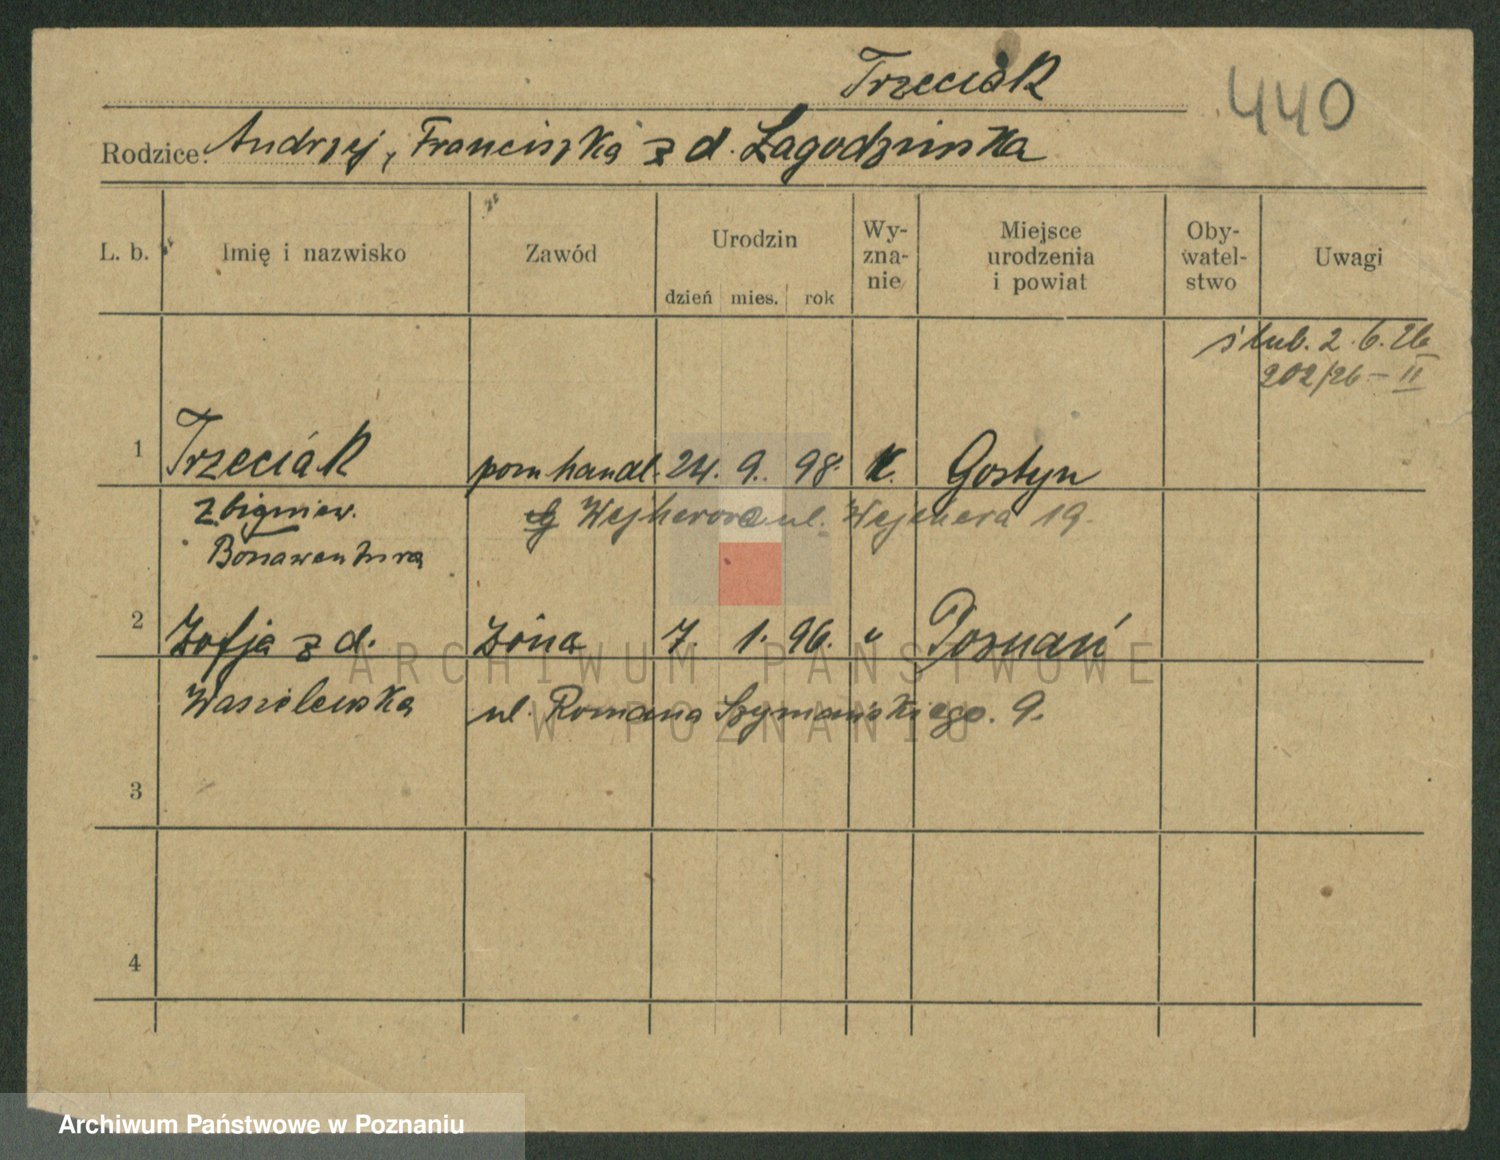 Trzeciak
440
Rodzice: Andrzej, Franciszka z d. Łagodzinska
L. b. Imię i nazwisko Zawód Urodzin Wy-zna-nie Miejsce urodzenia i powiat Oby-watel-stwo Uwagi
dzień mies. rok
ślub. 2.6.26
202/26 – II
1 Trzeciak pom handl. 24. 9. 98. k. Gostyn
Zbigniew. Wejherowo ul. Wejhera 19.
Bonawentura
2 Zofja z d. żona 7. 1. 96. " Poznań
ARCHIWUM PAŃSTWOWE
Wasielewska ul. Romana Szymańskiego. 9.
W POZNANIU
3
4
Archiwum Państwowe w Poznaniu